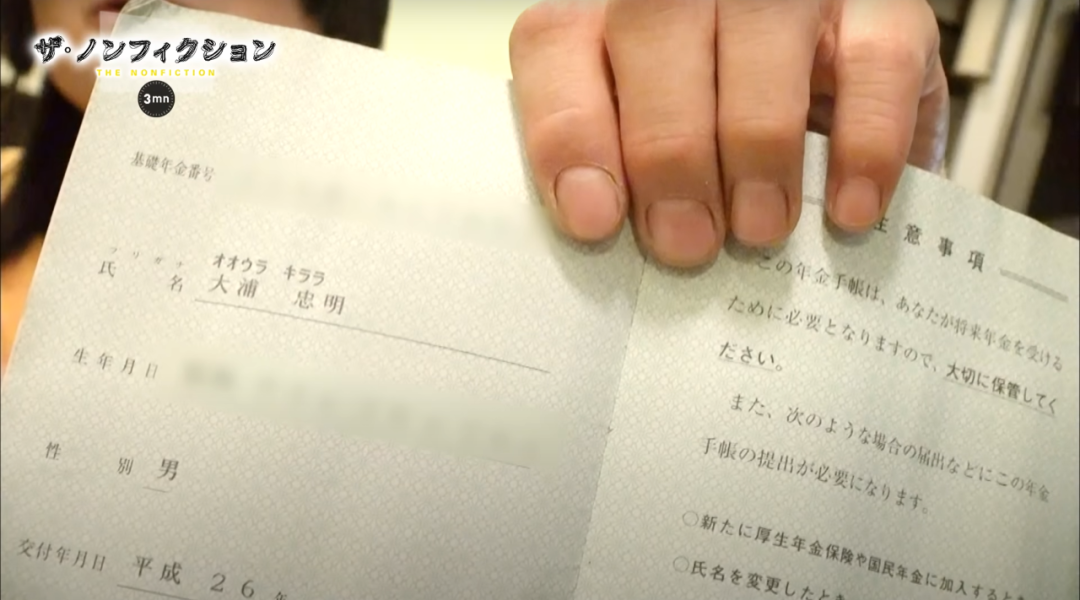 ザ・ノンフィクション
THE NONFICTION
3mn
基礎年金番号
フリガナ オオウラ キララ
氏名 大浦 忠明
生年月日
性別 男
交付年月日 平成 26 年
注意事項
この年金手帳は、あなたが将来年金を受ける
ために必要となりますので、大切に保管してく
ださい。
また、次のような場合の届出などにこの年金
手帳の提出が必要になります。
○新たに厚生年金保険や国民年金に加入するとき
○氏名を変更したとき